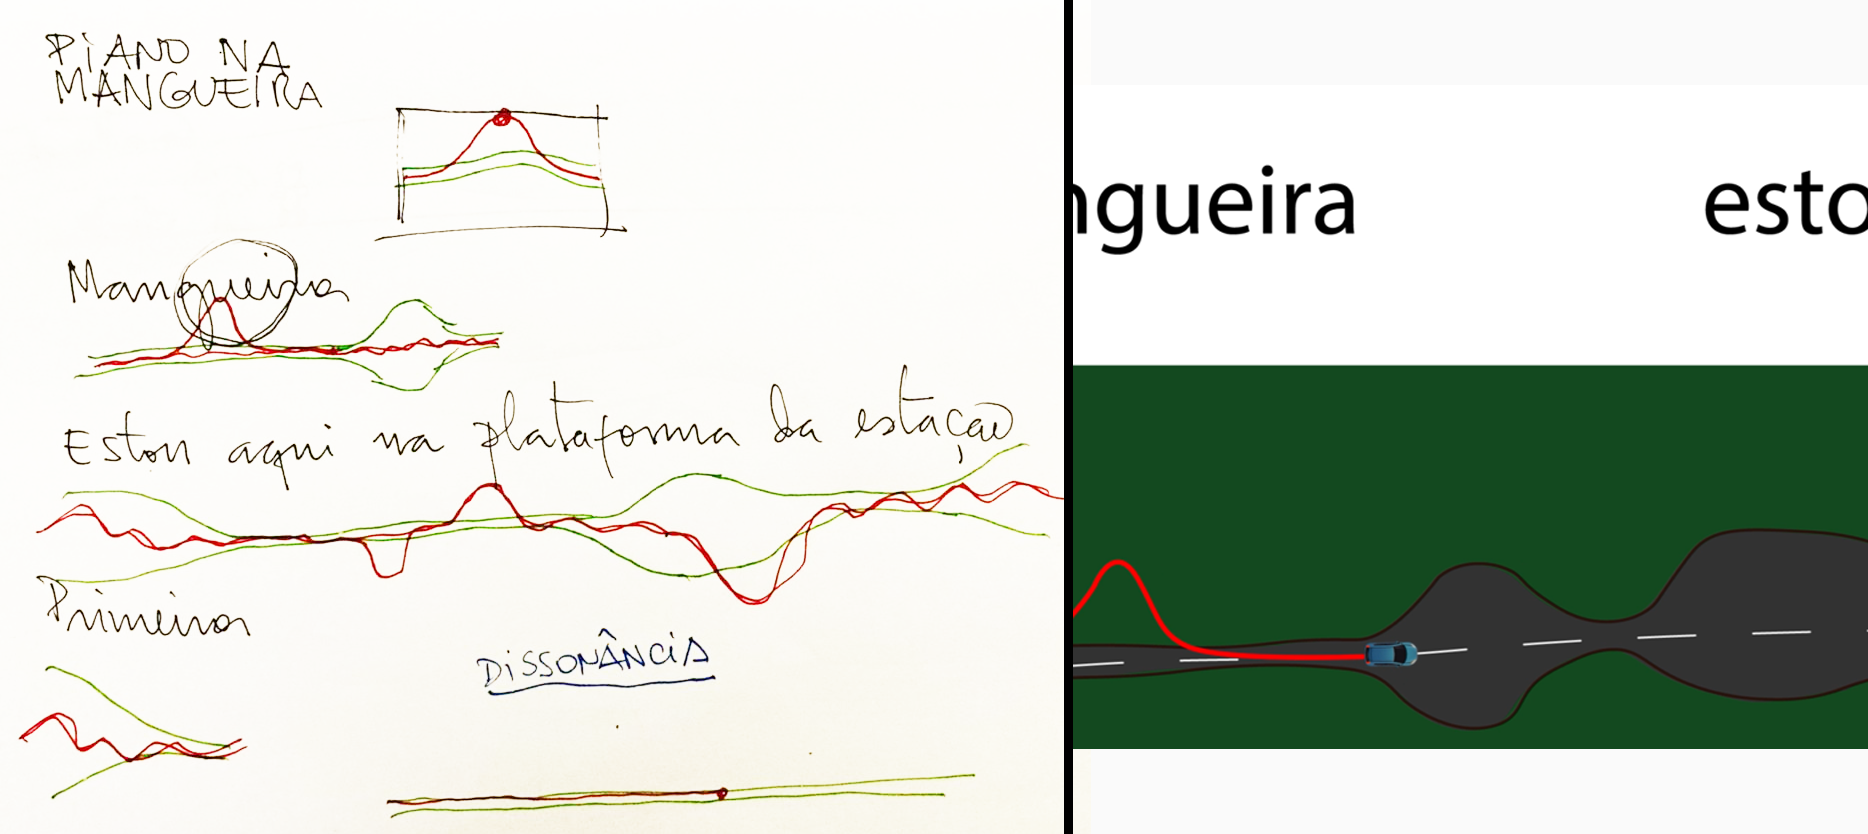 PIANO NA
MANGUEIRA
Mangueira
Estou aqui na plataforma da estação
Primeira
DISSONÂNCIA
ngueira
esto